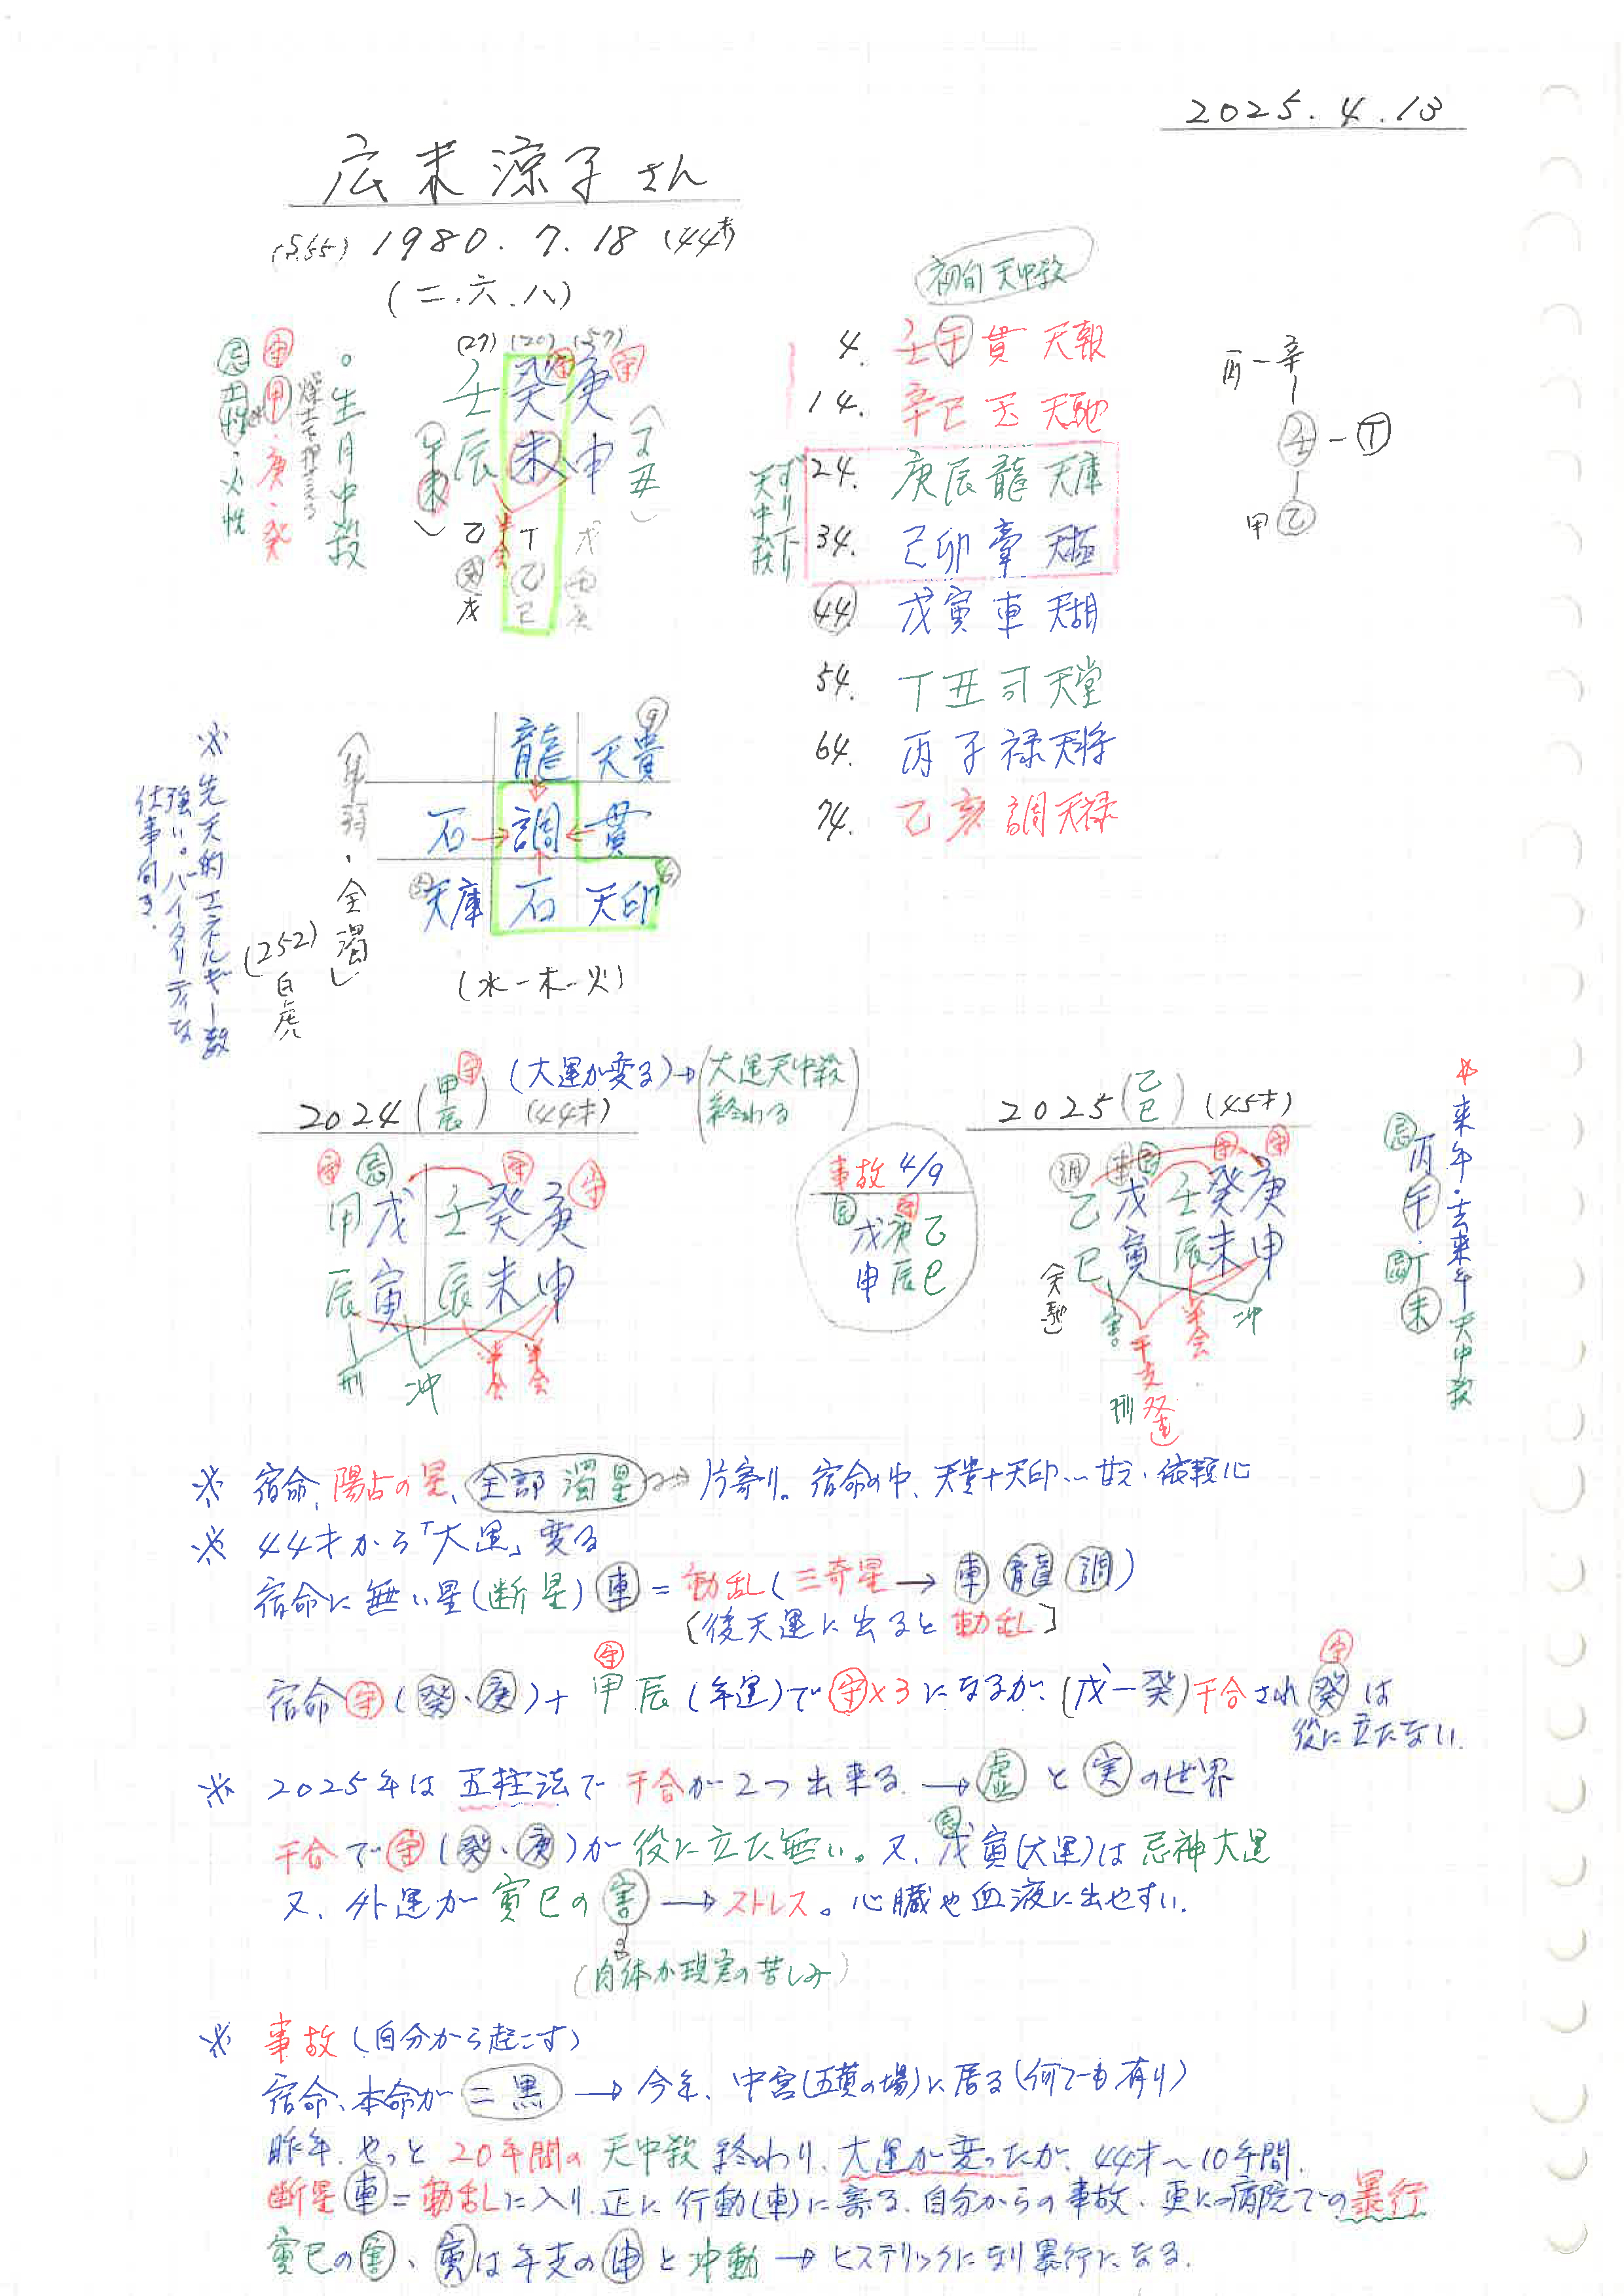 2025.4.13
広末涼子さん
(S.55) 1980.7.18 (44才)
(二.六.八)
初旬天中殺
(27) (20) (57)
壬 癸 庚
辰 未 申
(午未)
(子丑)
乙 丁 戊
癸 乙 壬
戊 己 庚
半会
守 守
。生月中殺
燥土を押さえる
守 甲・庚・癸
忌 土性・火性
4. 壬午 貫 天報
14. 辛巳 玉 天馳
24. 庚辰 龍 天庫
34. 己卯 牽 天極
44. 戊寅 車 天胡
54. 丁丑 司 天堂
64. 丙子 禄 天将
74. 乙亥 調 天禄
ずり下り
天中殺
丙-辛
壬-丁
甲 乙
龍 天貴 9
石→調←貫
5 天庫 石 天印 6
(水-木-火)
(身弱・全濁)
(252)
白虎
※先天的エネルギー数
強い。バイタリティな
仕事向き.
2024 (甲辰) 守 (44才)
(大運が変る)→(大運天中殺 終わる)
守 忌 守 守
甲 戊 壬 癸 庚
辰 寅 辰 未 申
刑 冲 半会 半会
事故 4/9
忌 守
戊 庚 乙
申 辰 巳
2025 (乙巳) (45才)
調 車 忌 守 守
乙 戊 壬 癸 庚
巳 寅 辰 未 申
(天馳)
害 干支 半会 冲
刑 双連
*来年・去来年 天中殺
忌 丙午・忌 丁未
※ 宿命、陽占の星、全部濁星→片寄り。宿命の中、天貴+天印…甘え・依頼心
※ 44才から「大運」変る
宿命に無い星(断星) 車=動乱(三奇星→車 龍 調)
[後天運に出ると動乱]
宿命守(癸、庚)+守甲辰(年運)で守×3になるが、(戊-癸)干合され守癸は
役に立たない.
※ 2025年は五柱法で干合が2つ出来る.→虚と実の世界
干合で守(癸、庚)が役に立た無い。又、忌戊寅(大運)は忌神大運
又、外運が寅巳の害→ストレス。心臓や血液に出やすい.
(肉体か現実の苦しみ)
※ 事故(自分から起こす)
宿命、本命が二黒→今年、中宮(五黄の場)に居る(何でも有り)
昨年、やっと20年間の天中殺終わり、大運が変ったが、44才~10年間、
断星車=動乱に入り、正に行動(車)に寄る、自分からの事故、更に病院での暴行
寅巳の害、寅は年支の申と冲動→ヒステリックになり暴行になる.